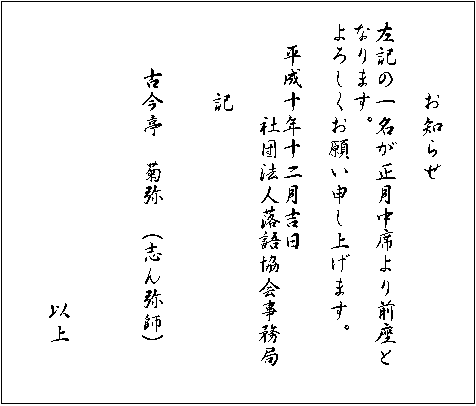 お知らせ
左記の一名が正月中席より前座と
なります。
よろしくお願い申し上げます。
平成十年十二月吉日
社団法人落語協会事務局
記
古今亭　菊弥　（志ん弥師）
以上